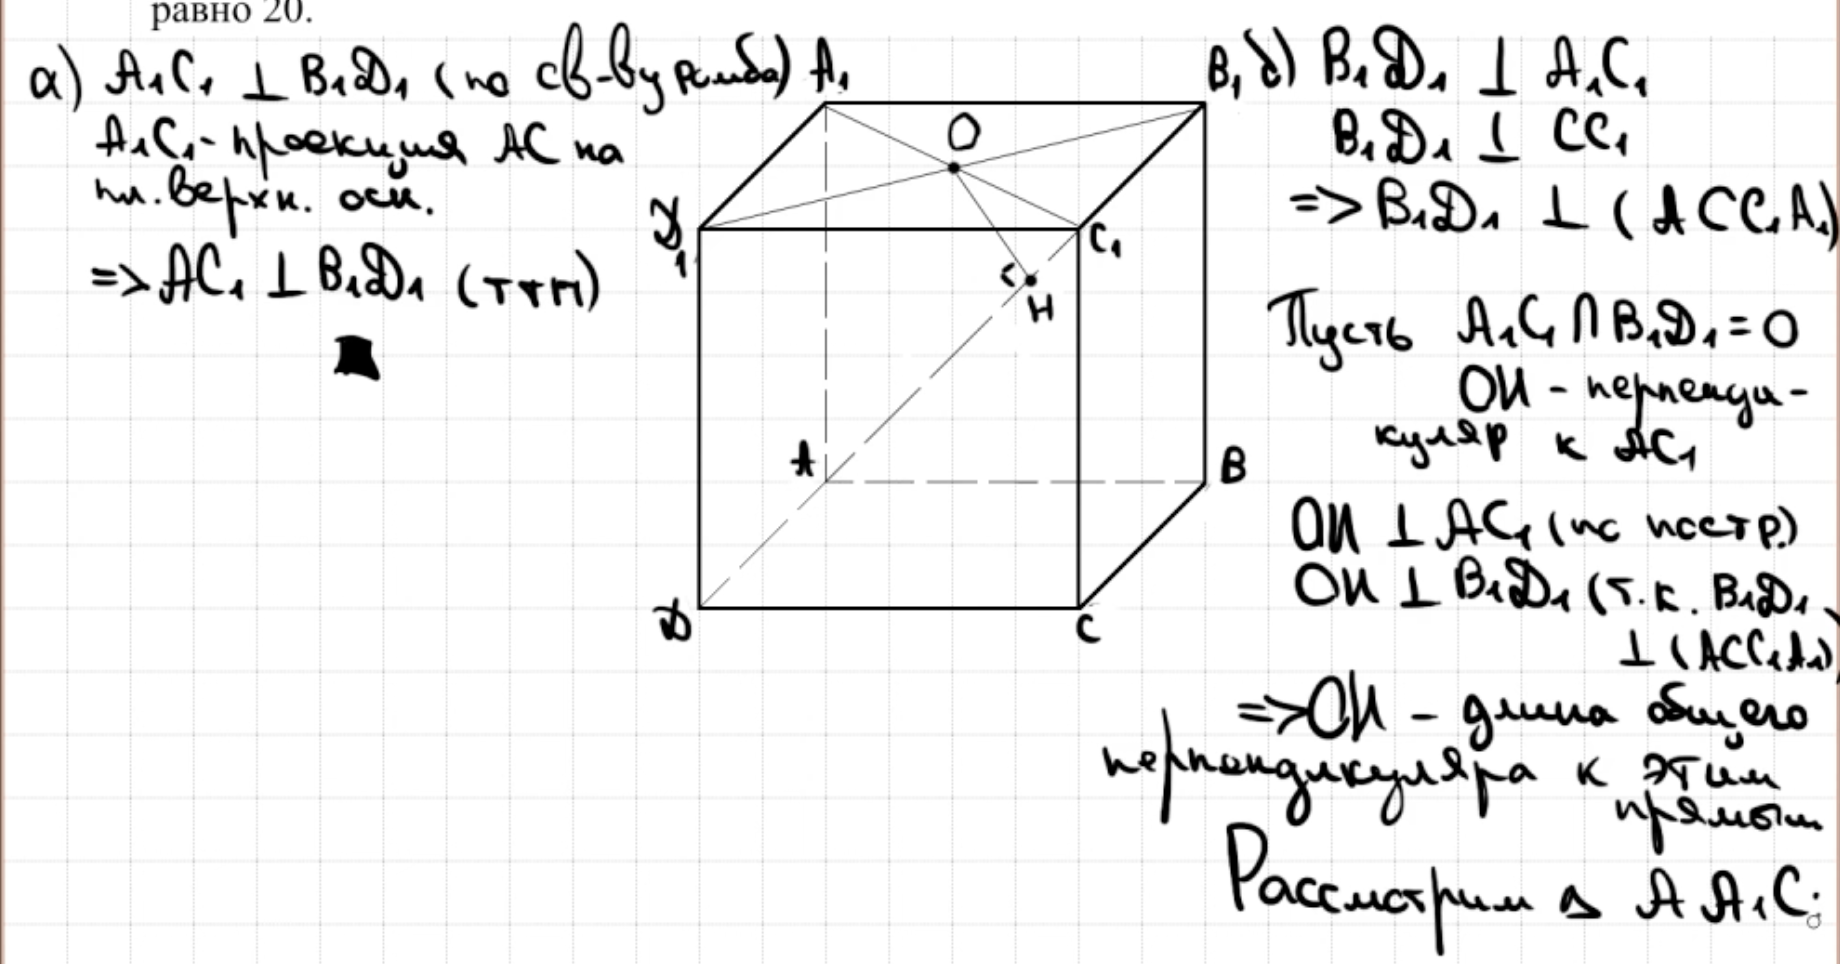 равно 20.
а) A₁C₁ ⊥ B₁D₁ (по св-ву ромба)
A₁C₁ - проекция AC на
пл. верхн. осн.
=> AC₁ ⊥ B₁D₁ (ТТП)
A₁
B₁
O
D₁
C₁
H
A
B
D
C
б) B₁D₁ ⊥ A₁C₁
B₁D₁ ⊥ CC₁
=> B₁D₁ ⊥ (ACC₁A₁)
Пусть A₁C₁ ∩ B₁D₁ = O
OH - перпенди-
куляр к AC₁
OH ⊥ AC₁ (по постр.)
OH ⊥ B₁D₁ (т.к. B₁D₁
⊥ (ACC₁A₁)
=> OH - длина общего
перпендикуляра к этим
прямым
Рассмотрим △ AA₁C: